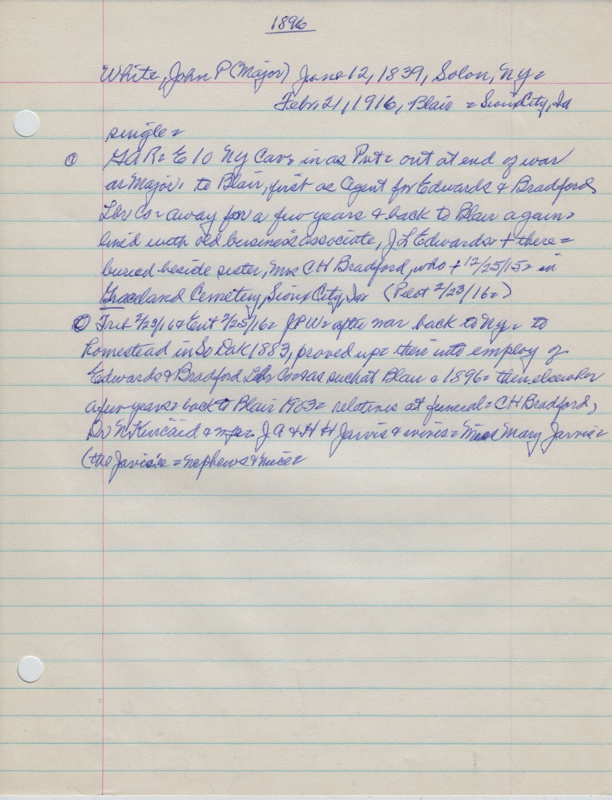 1896
White, John P (Major) June 12, 1839, Solon, Ny=
Febr 21, 1916, Blair = Sioux City, Ia
single=
① GAR= E 10 NY Cav= in as Pvt= out at end of war
as Major= to Blair, first as Agent for Edwards & Bradford
Lbr Co= away for a few years & back to Blair again=
lived with old business associate, J L Edwards + there=
buried beside sister, Mrs C H Bradford, who + 12/25/15= in
Graceland Cemetery, Sioux City, Ia= (Pilot 2/23/16=)
② Trib 2/23/16 & Ent 2/25/16= JPW= after war back to Ny= to
Homestead in So Dak 1883, proved up= then into employ of
Edwards & Bradford Lbr Co= as such at Blair = 1896= then elsewhere
a few years= back to Blair 1903= relatives at funeral= C H Bradford,
Dr N Kincaid & wife= J A & H H Jarvis & wives= Miss Mary Jarvis=
(the Jarvis'= nephews & niece=